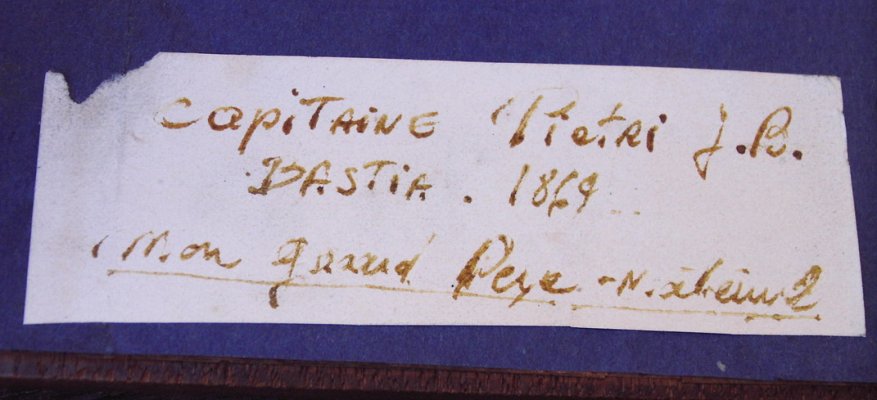 Capitaine Pietri J.B.
Bastia. 1869
Mon Grand Père Maternel